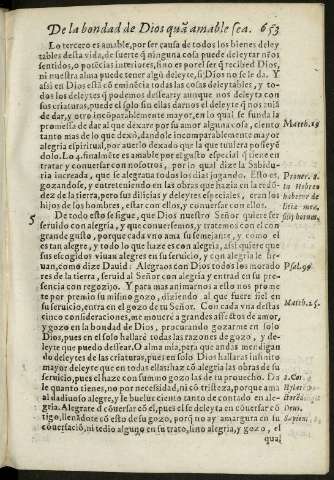 De la bondad de Dios quã amable sea. 653
Lo tercero es amable, por ser causa de todos los bienes deley
tables desta vida, de suerte q̃ ninguna cosa puede deleytar nr̃os
sentidos, o potẽcias interiores, sino es por el ser q̃ recibẽ de Dios,
ni nuestra alma puede tener algũ deleyte, si Dios no se le da. Y
assi en Dios estã cõ eminẽcia todas las cosas deleytables, y to-
dos los deleytes q̃ podemos dessear y aunque nos deleyta con
sus criaturas, puede el solo sin ellas darnos el deleyte q̃ nos auiã
de dar, y otro incõparablemente mayor, en lo qual se funda la
promessa de dar al que dexare por su amor alguna cosa, ciento
tanto mas de lo que dexò, dandole incomparablemente mayor
alegria espiritual, por auerlo dexado que la que tuuiera posseyẽ
dolo. Lo 4. finalmẽte es amable por el gusto especial q̃ tiene en
tratar y conuersar con nosotros, por lo qual dize la Sabidu-
ria increada, que se alegraua todos los dias jugando. Esto es,
gozandose, y entreteniendo en las obras que hazia en la redõ-
dez de la tierra, pero sus dilicias y deleytes especiales, eran los
hijos de los hombres, estar con ellos, y conuersar con ellos.
Matth. 19
Prouer. 8
5 De todo esto se sigue, que Dios nuestro Señor quiere ser
seruido con alegria, y que conuersemos, y tratemos con el con
grande gusto, porque cada vno ama su semejante, y como el
es tan alegre, y todo lo que haze es con alegria, assi quiere que
sus escogidos viuan alegres en su seruicio, y con alegria le sir-
uan, como dize Dauid: Alegraos con Dios todos los morado
res de la tierra, seruid al Señor con alegria y entrad en su pre-
sencia con regozijo. Y para mas animarnos a esto nos prome
te por premio su mismo gozo, diziendo al que fuere fiel en
su seruicio, entra en el gozo de tu Señor. Con cada vna destas
cinco consideraciones, me mouerè a grandes affectos de amor,
y gozo en la bondad de Dios, procurando gozarme en solo
Dios, pues en el solo hallarè todas las razones de gozo, y de-
leyte que puedo dessear. O alma mia, para que andas mendigan
do deleytes de las criaturas, pues en solo Dios hallaras infinito
mayor deleyte que en todas ellas? haz cõ alegria las obras de su
seruicio, pues el haze con summo gozo las de tu prouecho. Da
le quanto tienes, no por necessidad, ni cõ tristeza, porque ama
al dadiuoso alegre, y le buelue ciento tanto de contado en ale-
gria. Alegrate de cõuersar cõ el, pues el se deleyta en cõuersar cõ
tigo, llenãdote cõ esto de su gozo, porq̃ no ay amargura en su
cõuersaciõ, ni tedio alguno en su trato, sino alegria, y gozo, el
qual
Psal. 99
Matth. 25.
2. Cor.
Sapien.